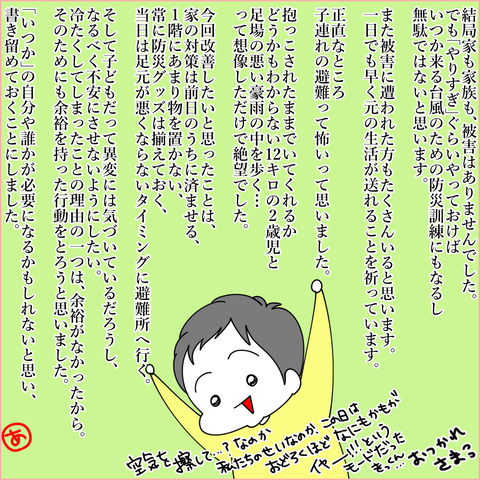 結局家も家族も、被害はありませんでした。
でも「やりすぎ」ぐらいやっておけば
いつか来る台風のための防災訓練にもなるし
無駄ではないと思います。
また被害に遭われた方もたくさんいると思います。
一日でも早く元の生活が送れることを祈っています。
正直なところ
子連れの避難って怖いって思いました。
抱っこされたままでいてくれるか
どうかもわからない12キロの2歳児と
足場の悪い豪雨の中を歩く…
って想像しただけで絶望でした。
今回改善したいと思ったことは、
家の対策は前日のうちに済ませる、
1階にあまり物を置かない、
常に防災グッズは揃えておく、
当日は足元が悪くならないタイミングに避難所へ行く。
そして子どもだって異変には気づいているだろうし、
なるべく不安にさせないようにしたい。
冷たくしてしまったことの理由の一つは、余裕がなかったから。
そのためにも余裕を持った行動をとろうと思いました。
「いつか」の自分や誰かが必要になるかもしれないと思い、
書き留めておくことにしました。
空気を察して…?なのか
私たちのせいなのか、この日は
おどろくほどなにもかもが
イヤー!!!という
モードだった
きっくん…
おつかれ
さまっ
あ